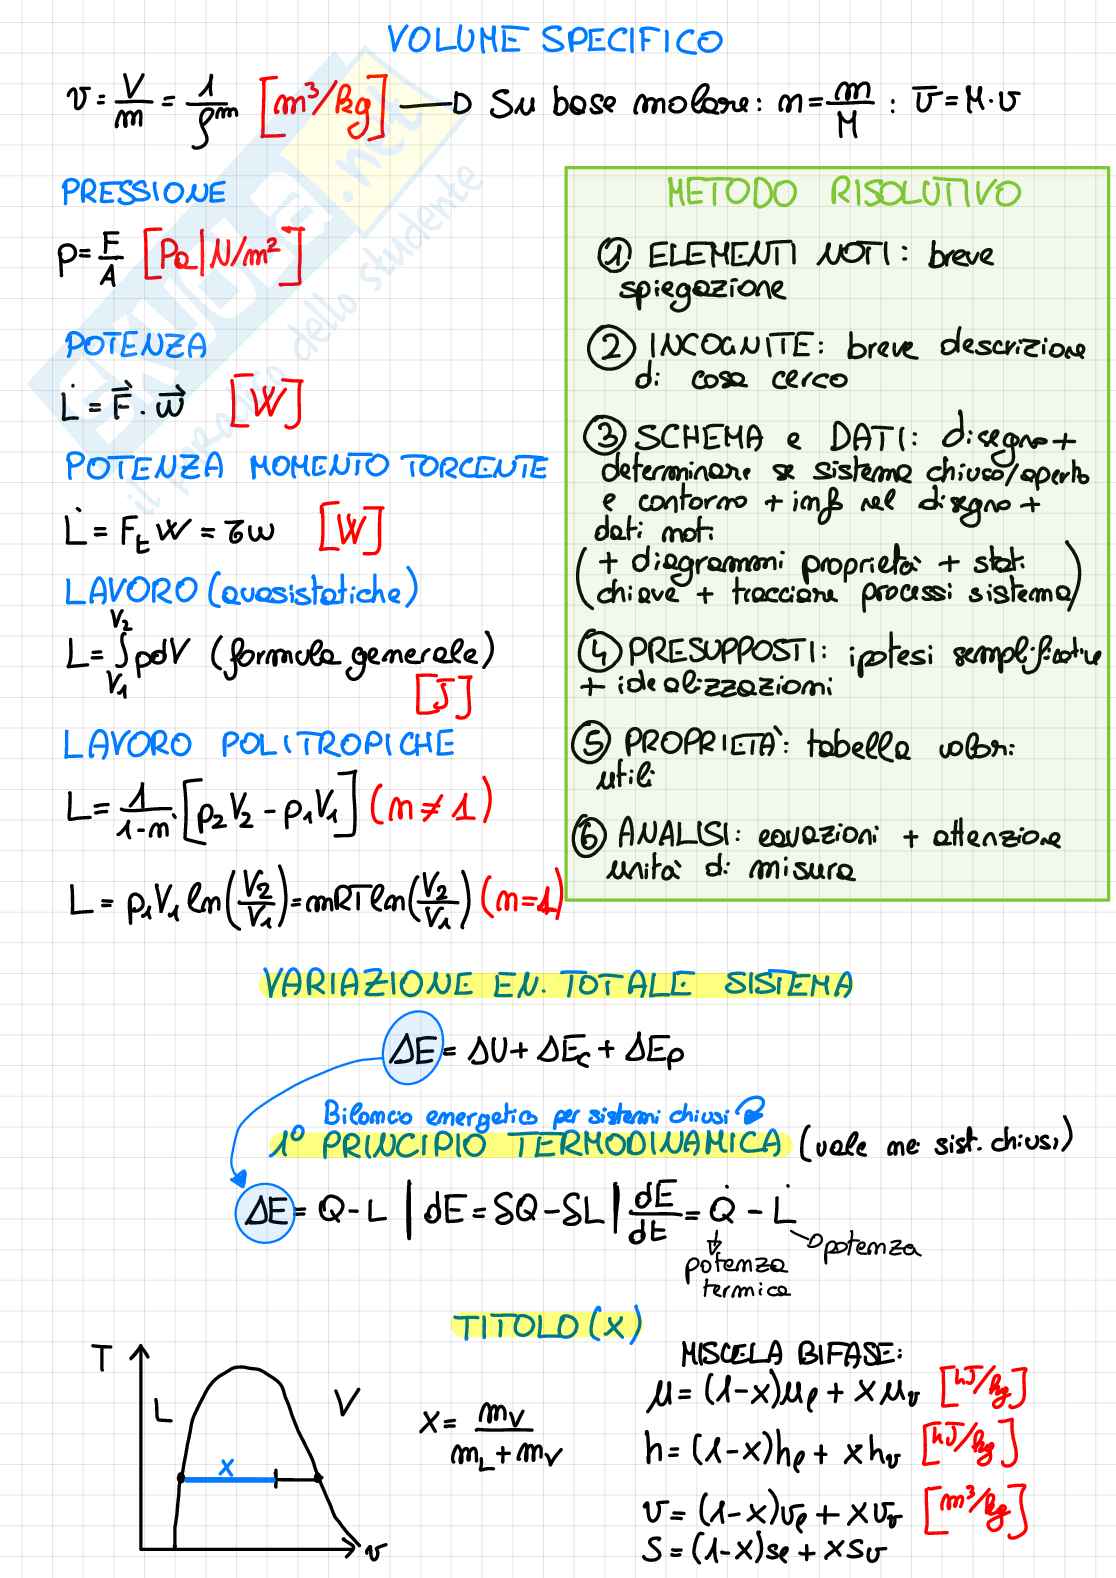 VOLUME SPECIFICO
v = V/m = 1/ρm [m³/kg] → Su base molare: n = m/M : v̄ = M·v
PRESSIONE
p = F/A [Pa | N/m²]
POTENZA
L̇ = F⃗ · w⃗ [W]
POTENZA MOMENTO TORCENTE
L̇ = Ft W = τω [W]
LAVORO (quasistatiche)
L = ∫ V1 V2 pdV (formula generale)
[J]
LAVORO POLITROPICHE
L = 1/(1-n) · [p2V2 - p1V1] (n ≠ 1)
L = p1V1 ln(V2/V1) = mRT ln(V2/V1) (n=1)
METODO RISOLUTIVO
① ELEMENTI NOTI: breve
spiegazione
② INCOGNITE: breve descrizione
di cosa cerco
③ SCHEMA e DATI: disegno +
determinare se sistema chiuso/aperto
e contorno + info nel disegno +
dati noti
(+ diagrammi proprietà + stati
chiave + tracciare processi sistema)
④ PRESUPPOSTI: ipotesi semplificative
+ idealizzazioni
⑤ PROPRIETÀ: tabella valori
utili
⑥ ANALISI: equazioni + attenzione
unità di misura
VARIAZIONE EN. TOTALE SISTEMA
ΔE = ΔU + ΔEc + ΔEp
Bilancio energetico per sistemi chiusi
1° PRINCIPIO TERMODINAMICA (vale nei sist. chiusi)
ΔE = Q - L | dE = δQ - δL | dE/dt = Q̇ - L̇
potenza
potenza
termica
TITOLO (x)
T
L
V
x
v
x = mv/(mL + mv)
MISCELA BIFASE:
μ = (1-x)μℓ + xμv [kJ/kg]
h = (1-x)hℓ + xhv [kJ/kg]
v = (1-x)vℓ + xvv [m³/kg]
S = (1-x)sℓ + xSv
SKUOLA.net
il paradiso dello studente